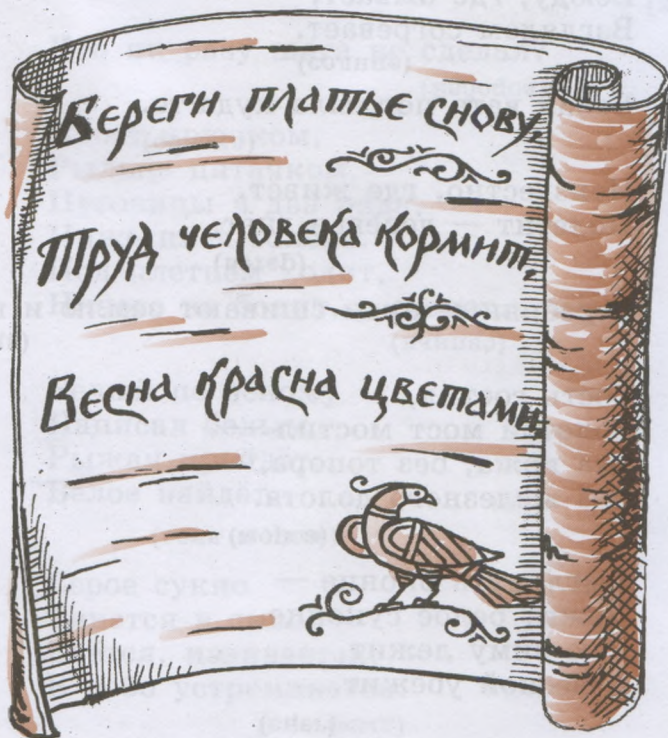 Береги платье снову,
Труд человека кормит,
Весна красна цветами,